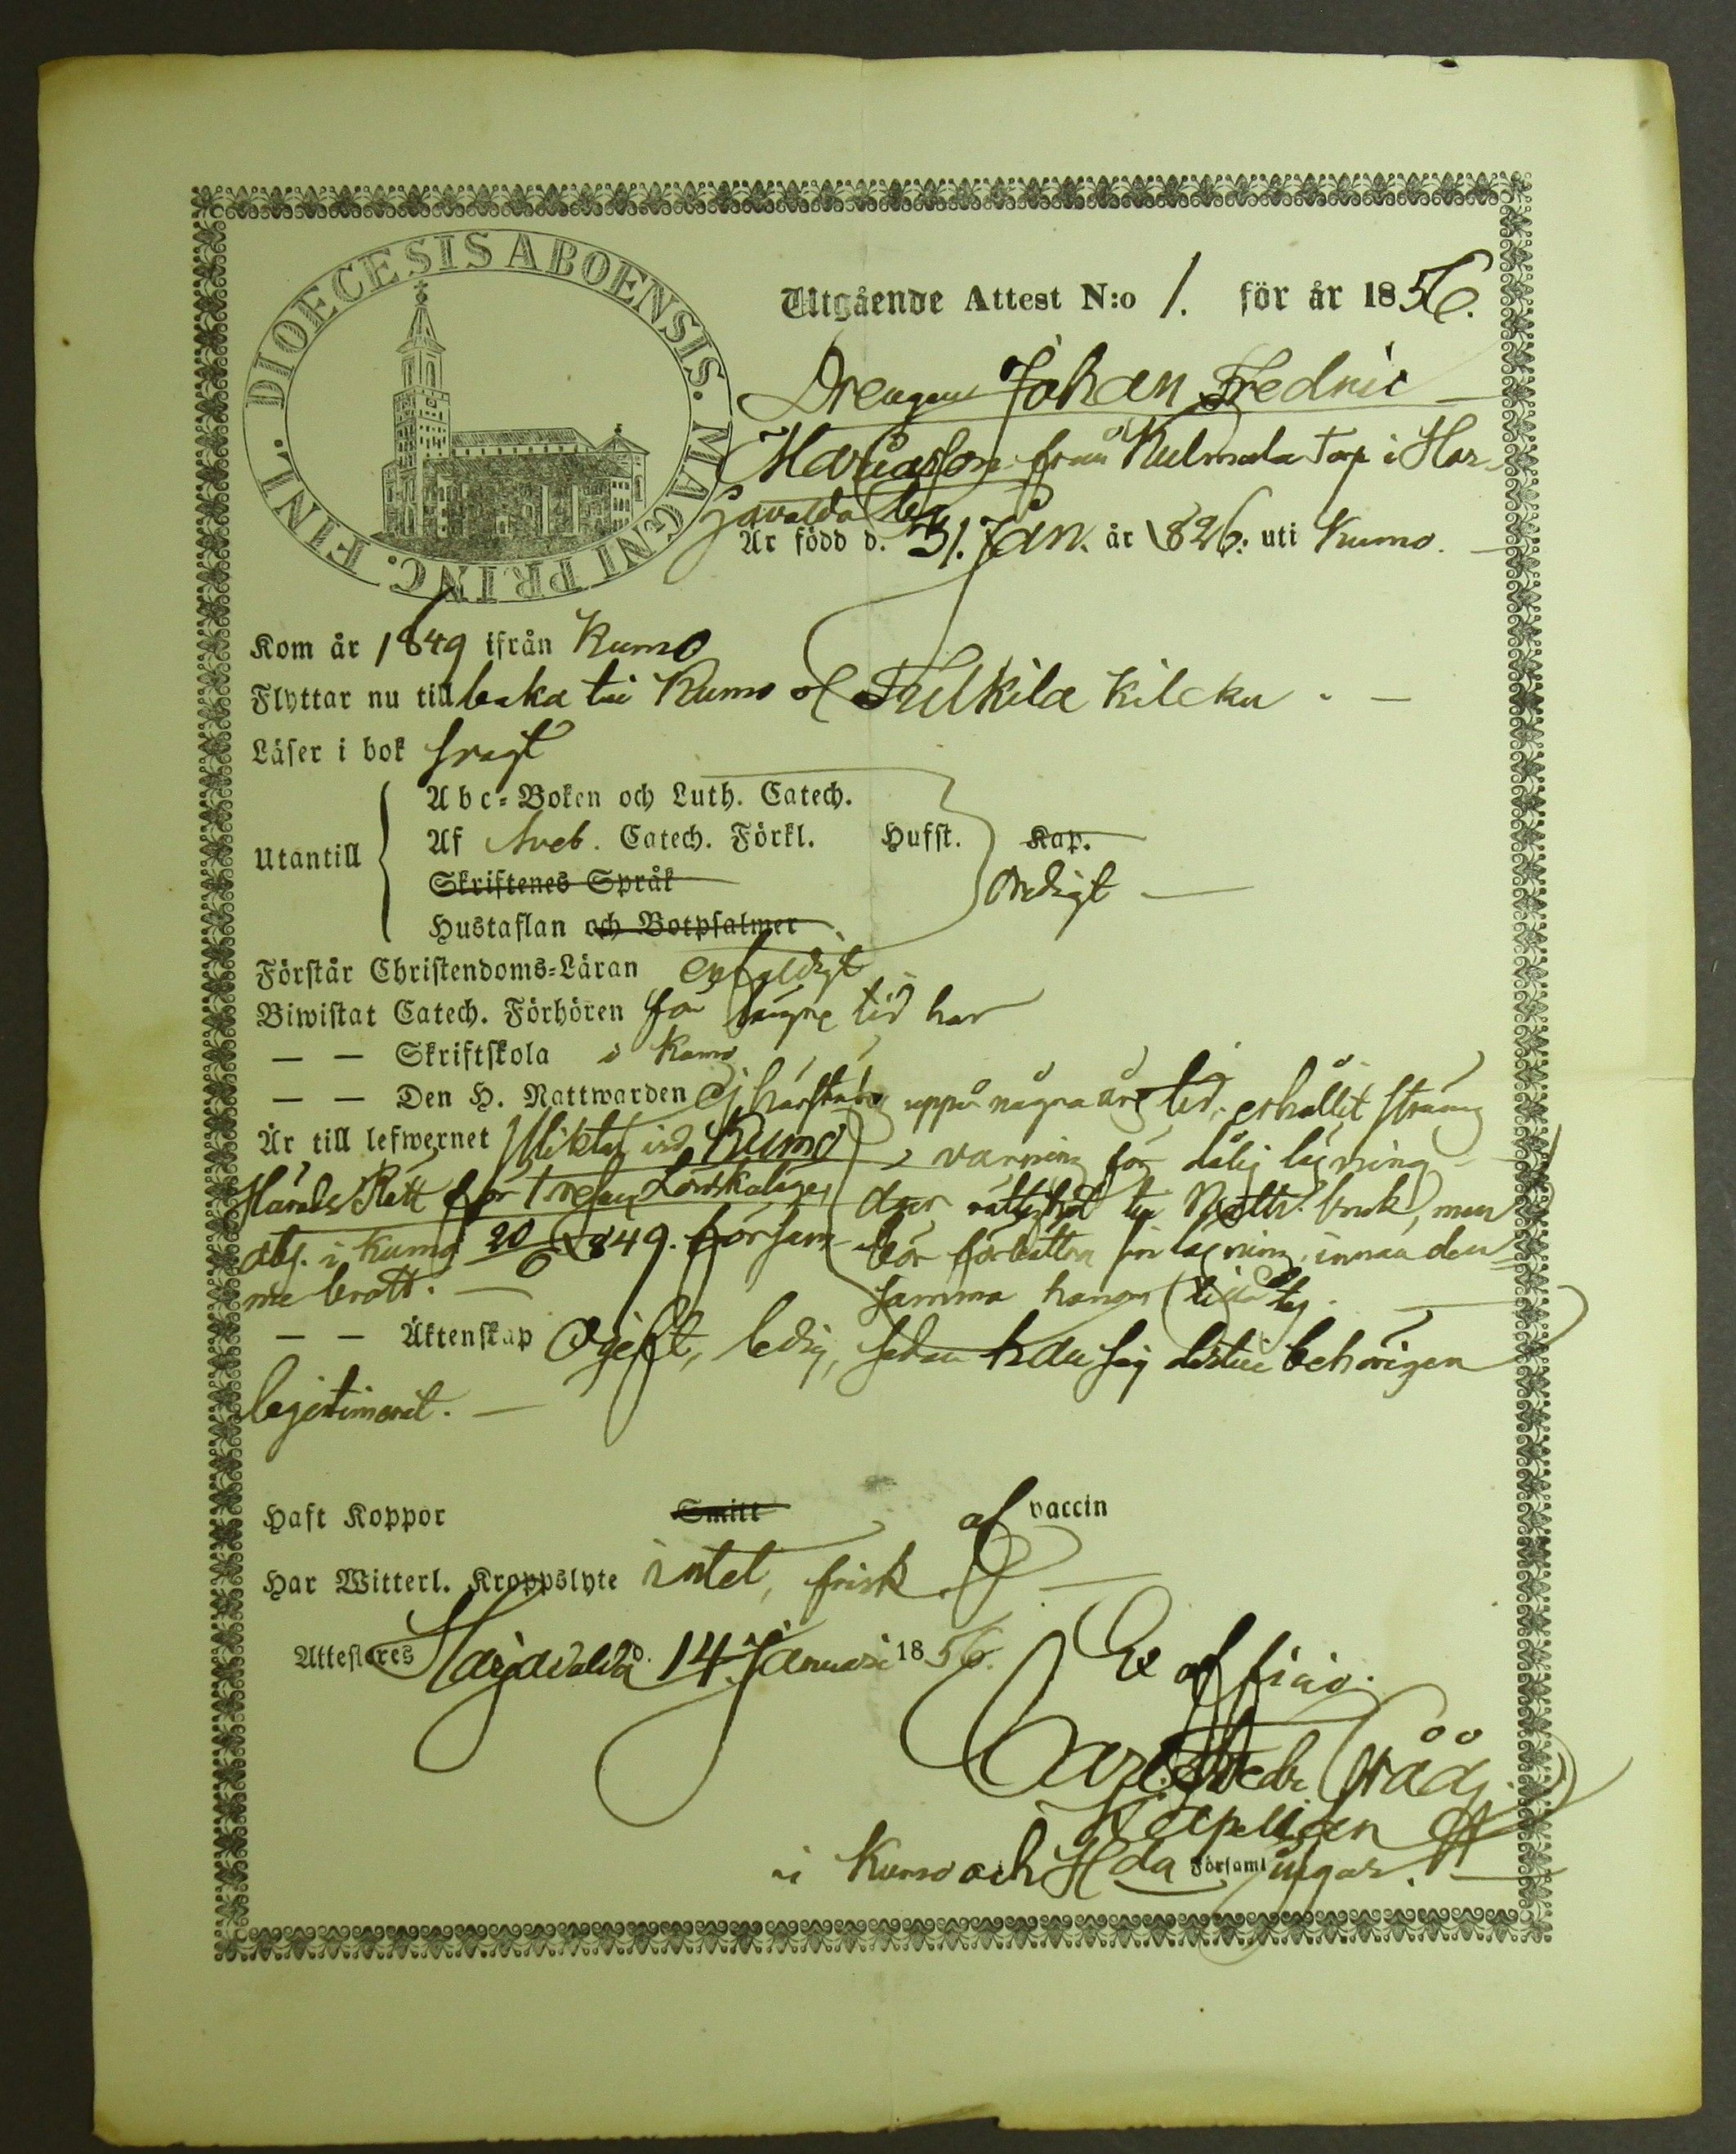 DIOECESIS ABOENSIS. MAGNI PRINC. FINL.
Utgående Attest N:o 1. för år 1856.
Drengen Johan Fredric
Mariasson från Kulmala torp i Har-
javalda
Är född d. 31. Jan. år 1826. uti Kumo.
Kom år 1849 ifrån Kumo
Flyttar nu tillbaka till Kumo
Läser i bok svagt
Abc-Boken och Luth. Catech.
Utantill Af Sveb. Catech. Förkl. Hufst. Kap.
Skriftenes Språk
Hustaflan och Botpsalmer
Förstår Christendoms-Läran enfaldigt
Biwistat Catech. Förhören för längre tid har
— — Skriftskola i Kumo
— — Den H. Nattwarden ej härstädes uppå några års tid, erhållit sträng
Är till lefwernet Kumo varning för dålig läsning
Härads Rätt för tredje Lönskaläge, till Nattv. bruk, men
abs. i Kumo 20/6 1849. för sam- bör förbättra sin läsning, innan den-
me brott. — samma
— — Äktenskap Ogift, ledig, sedan behörigen
legitimerat. —
Haft Koppor Smitt af vaccin
Har Witterl. Kroppslyte intet, frisk.
Attesteres Harjavalda d. 14 Januari 1856. Ex officio.
Carl
Kapellan
i Kumo och H da Församlingar.